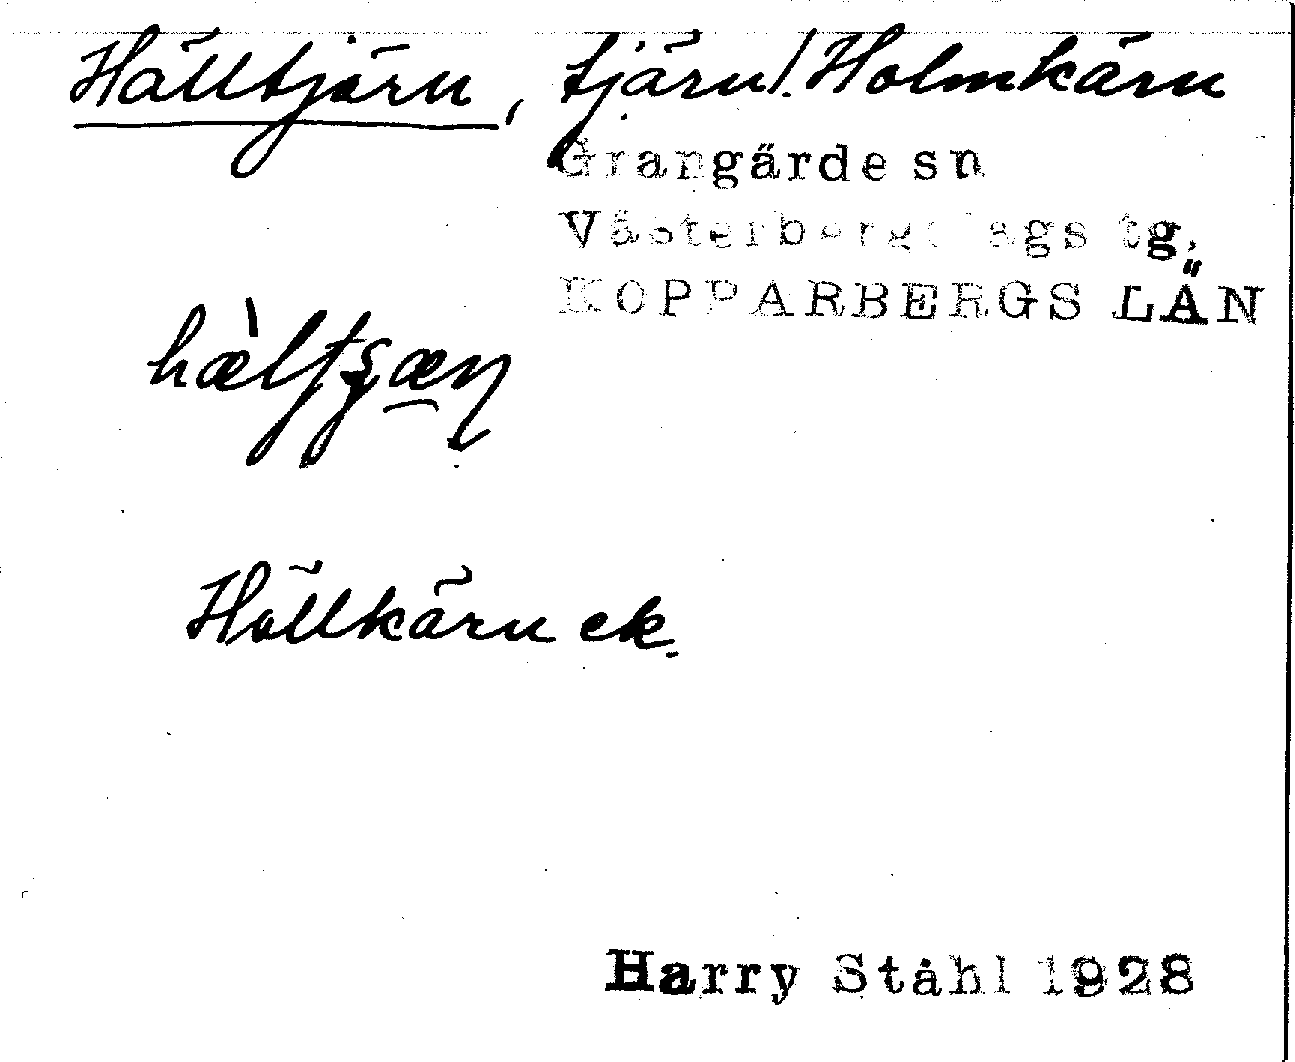 Hälltjärn, tjärn l. Holmkärn
Grangärde sn
Västerbergslags tg,
KOPPARBERGS LÄN
Hällkärn ek.
Harry Ståhl 1928